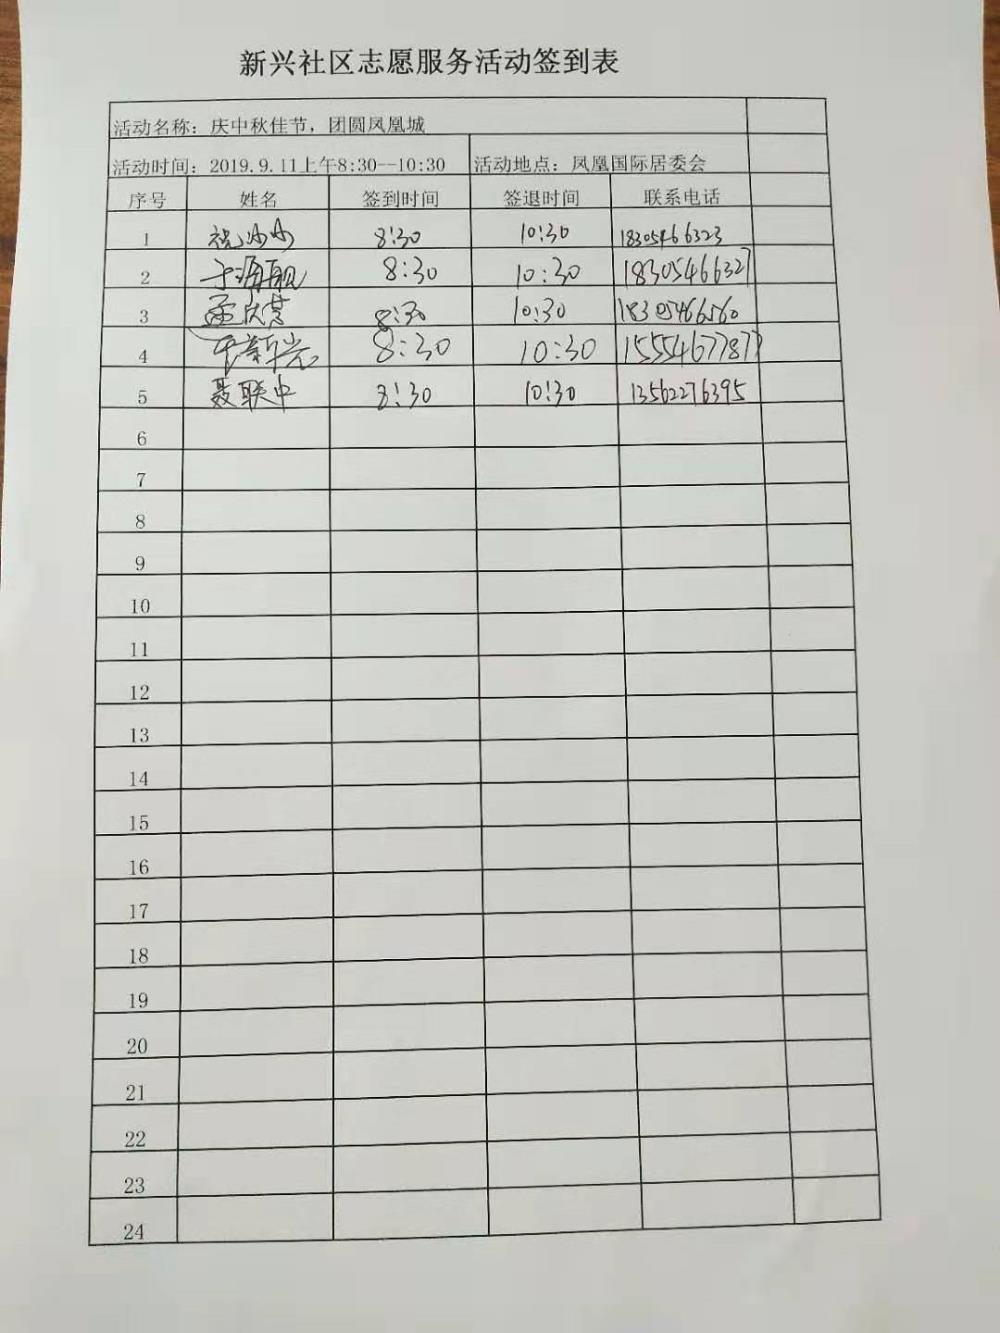 新兴社区志愿服务活动签到表
活动名称：庆中秋佳节，团圆凤凰城
活动时间：2019.9.11上午8:30--10:30 活动地点：凤凰国际居委会
序号 姓名 签到时间 签退时间 联系电话
1 8:30 10:30 18305466323
2 8:30 10:30 18305466327
3 孟庆芸 8:30 10:30 18305466560
4 8:30 10:30 15554677877
5 聂联中 8:30 10:30 13562276395
6
7
8
9
10
11
12
13
14
15
16
17
18
19
20
21
22
23
24